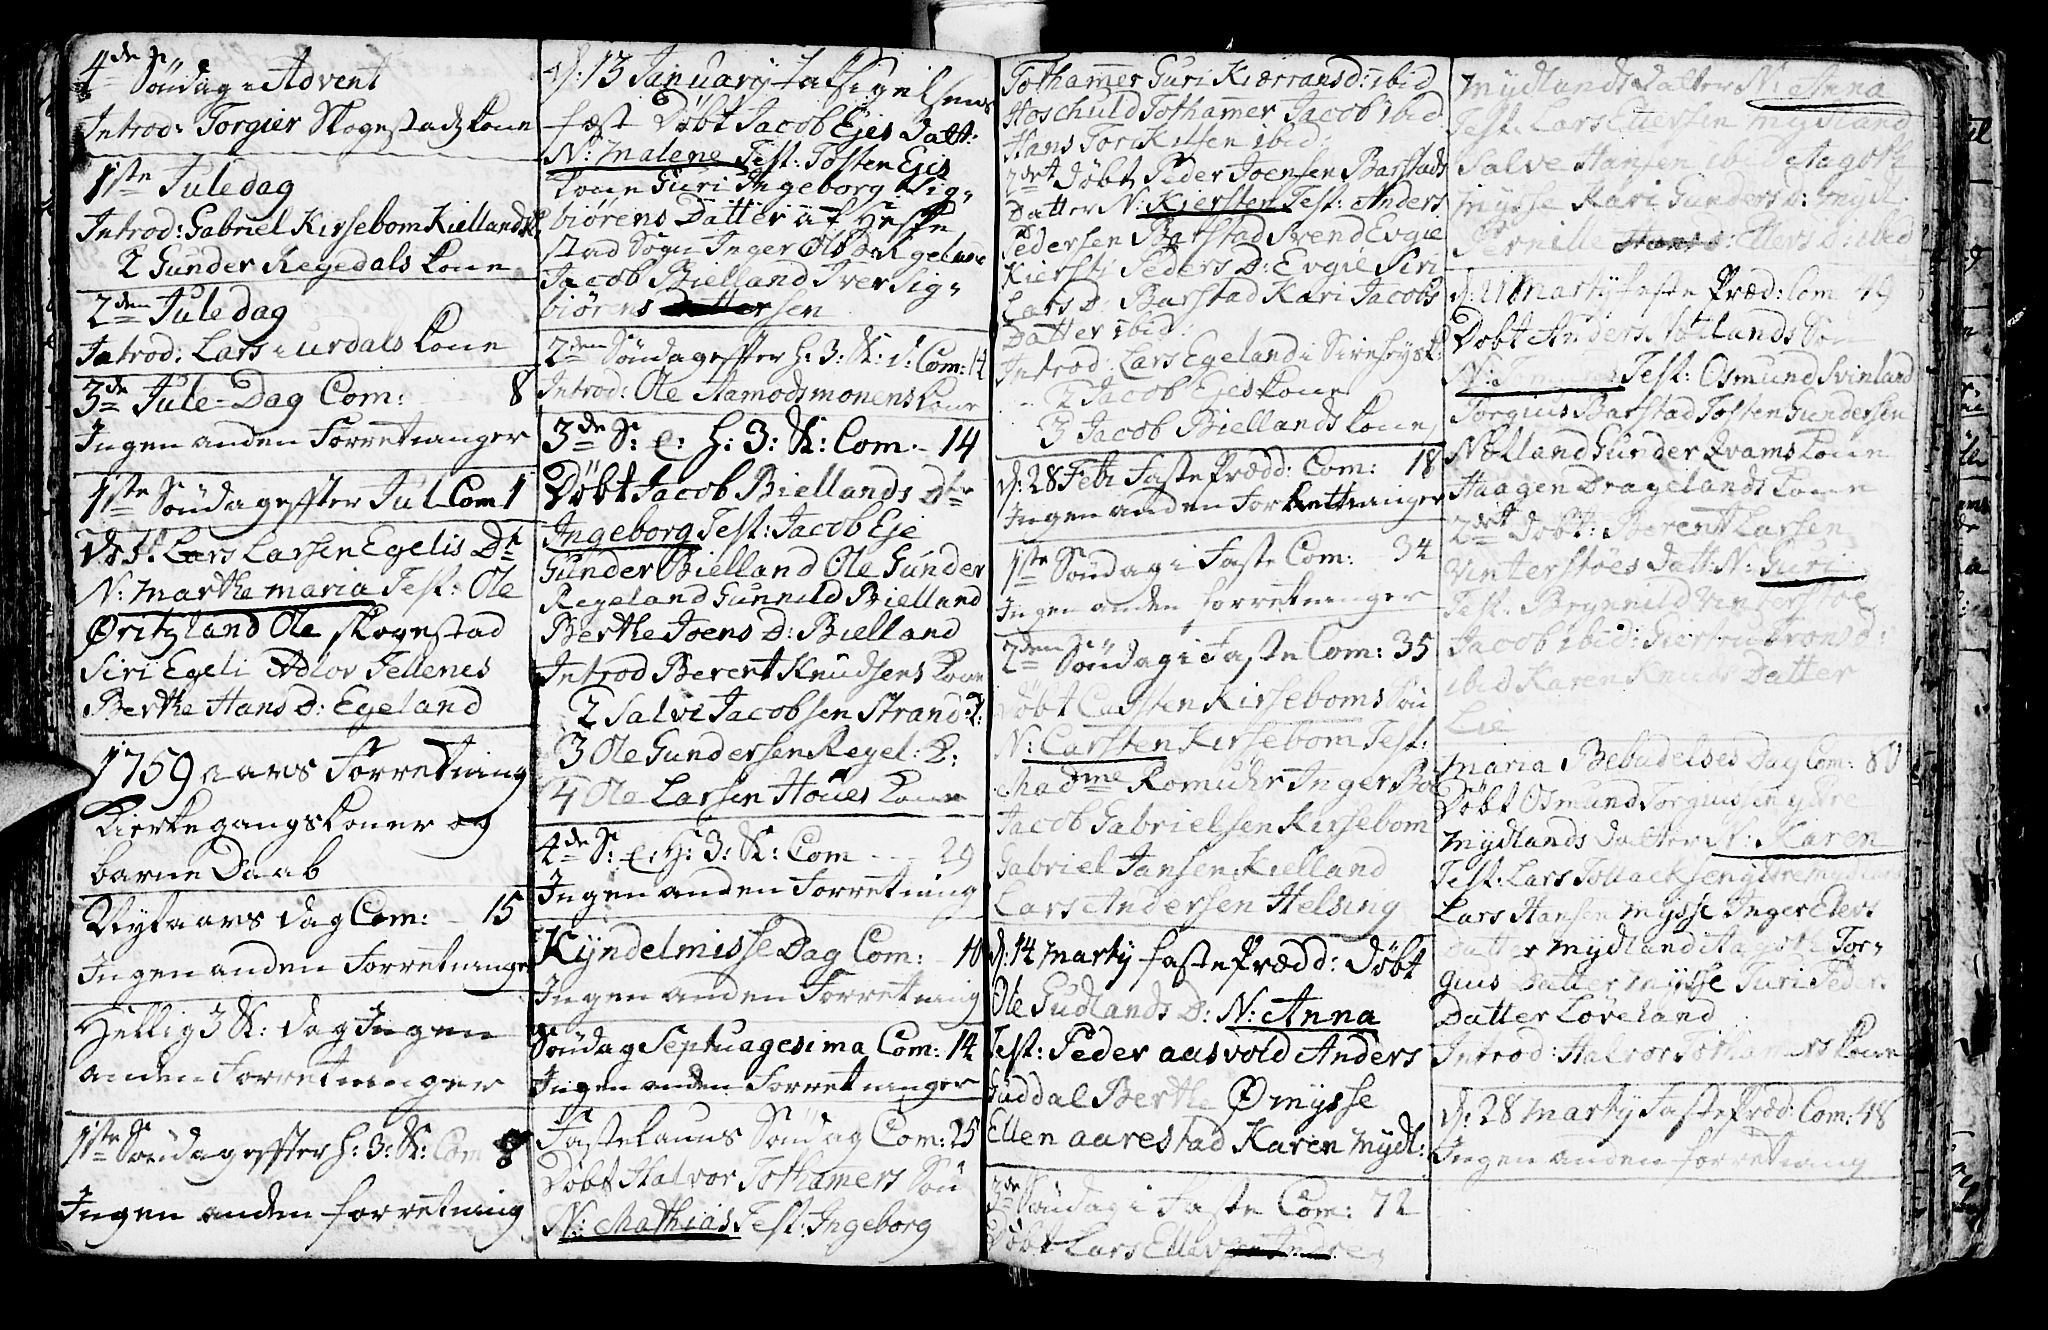 4de Søndag i Advent
Introd: Torgier Skogestads kone
1ste Juledag
Introd: Gabriel Kirsebom Kiellands K:
2 Gunder Regedals kone
2den Juledag
Introd: Lars i urdals kone
3de Jule-Dag Com: 8
Ingen anden Forretninger
1ste Søndag effter Jul Com 1
Døbt Lars Larsen Egelis Dt
N: Marthe maria Test: Ole
Øritzland Ole Skogestad
Siri Egeli Adlov Fellenes
Berthe Hans D: Egeland
1759 aars Forretning
Kierkegangs koner og
barne Daab
Nytaars dag Com: 15
Ingen anden Forretninger
Hellig 3 K: dag Ingen
anden Forretninger
1ste Søndag effter h: 3: K: Com 8
Ingen anden forretning
d: 13 January Taksigelsens
fæst Døbt Jacob Ejes Datt:
N: Malene Test: Tosten Ejes
kone Guri Ingeborg Sig-
biørens Datter af Heske
stad Sogn Inger Ols D: Rgeland
Jacob Bielland Iver Sig-
biørens sen
2den Søndag effter h: 3: K: d: Com: 14
Introd: Ole Aamodsmonens kone
3de S: e: h: 3: K: Com - 14
Døbt Jacob Biellands Dtr
Ingeborg Test: Jacob Eje
Gunder Bielland Ole Gunder
Regeland Gunnild Bielland
Berthe Joens D: Bielland
Introd Berent Knudsens kone
2 Salvi Jacobsen Strand: K:
3 Ole Gundersen Regel: K:
4 Ole Larsen Houes kone
4de S: e: H: 3: K: Com - - 29
Ingen anden Forretning
Kyndelmisse Dag Com: 10
Ingen anden Forretning
Søndag Septuagesima Com: 14
Ingen anden Forretninger
Fastelauns Søndag Com: 25
Døbt Halvor Tothamers Søn
N: Mathias Test: Ingeborg
Tothamer Guri Kierrans d: ibid
Hoschuld Tothamer Jacob ibid
Hans Torkilsen ibid
2det Døbt Peder Joensen Barstads
Datter N: Kiersten Test: Anders
Pedersen Barstad Svend Evgie
Kiersti Peders D: Evgie Siri
Lars D: Barstad Kari Jacobs
Datter ibid:
Introd: Lars Egeland i Sireheys K:
2 Jacob Ejes kone
3 Jacob Biellands kone
d: 28 Feb: Faste Prædd: Com: 18
Ingen anden Forrettninger
1ste Søndag i Faste Com: 34
Ingen anden forretninger
2den Søndag i Faste Com: 35
Døbt Carsten Kirseboms Søn
N: Carsten Kirsebom Test:
Madme Romuhr Inger Boe
Jacob Gabrielsen Kirsebom
Gabriel Jansen Kielland
Lars Andersen Helsing
d: 14 marty faste Prædd: Døbt
Ole Gudlands D: N: Anna
Test: Peder aasvold Anders
Guddal Berthe Ømysse
Ellen aarestad Karen Mydl:
3de Søndag i Faste Com: 72
Døbt Lars Ellev
Mydlands datter N: Anna
Test: Lars Ellefsen Mydland
Salve Hansen ibid Aagoth
Mysse Kari Gunders D: Mydl:
Pernille Ellers D: ibid
d: 21 Marty faste Præd: Com 49
Døbt Anders Nøtlands Søn
N: Test: Osmund Svinland
Torgius Barstad Tosten Gundersen
Nøtland Gunder Qvams kone
Haagen Dragelands kone
2det Døbt: Berent Larsen
Vinterstøes datt: N: Guri
Test: Brynnild Vinterstøe
Jacob ibid: Giertru d:
ibid Karen Knuds Datter
Lie
Maria Bebudelses Dag Com: 80
Døbt Osmund Torgiussen ydtre
Mydlands datter N: Karen
Test: Lars Tollacksen ydtre mydland
Lars Hansen Mysse Inger Elers
Datter Mydland Aagoth Tor-
gius Datter Mysse Turi Peders
Datter Løveland
Introd: Halvor Tothamers kone
d: 28 Marty Faste Præd: Com: 48
Ingen anden forretning